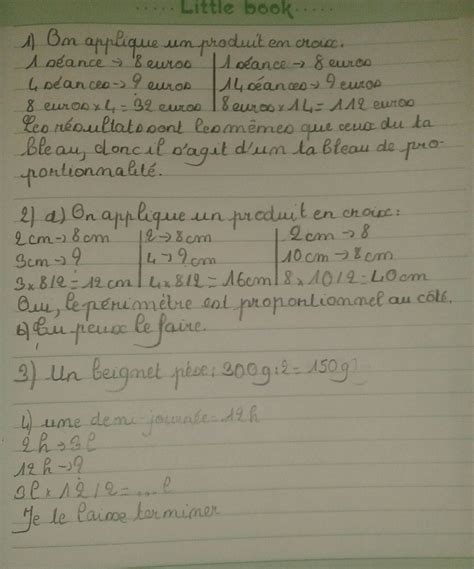 Little book
1) On applique un produit en croix.
1 séance → 8 euros | 1 séance → 8 euros
4 séances → ? euros | 14 séances → ? euros
8 euros x 4 = 32 euros | 8 euros x 14 = 112 euros
Les résultats sont les mêmes que ceux du ta
bleau, donc il s'agit d'un tableau de pro-
portionnalité.
2) a) On applique un produit en croix:
2cm → 8cm | 2 → 8cm | 2cm → 8
3cm → ? | 4 → ?cm | 10cm → 8cm
3 x 8/2 = 12 cm | 4 x 8/2 = 16cm | 8 x 10/2 = 40cm
Oui, le périmètre est proportionnel au côté.
b) Tu peux le faire.
3) Un beignet pèse: 300g:2 = 150g
4) une demi-journée = 12h
2h → 3l
12h → ?
3l x 12/2 = ... l
Je te laisse terminer